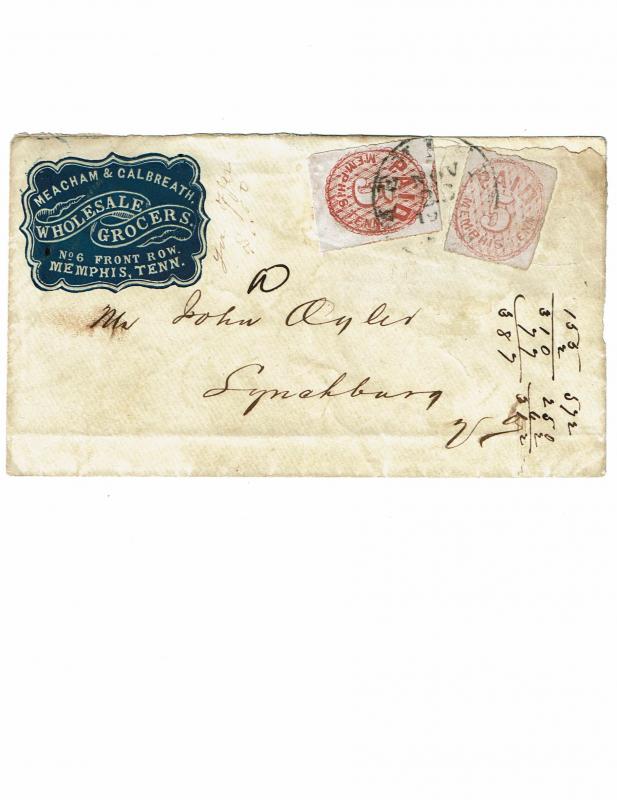 MEACHAM & CALBREATH,
WHOLESALE
GROCERS,
No 6 FRONT ROW.
MEMPHIS, TENN.
PAID
5
MEMPHIS, TENN.
PAID
5
MEMPHIS, TENN.
NOV
Mr John Oyler
Lynchburg
Va
155
2
310
77
387
572
250